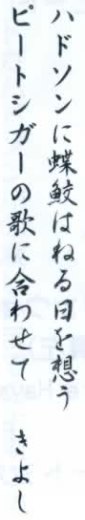 ハドソンに蝶鮫はねる日を想う
ピートシガーの歌に合わせて　きよし